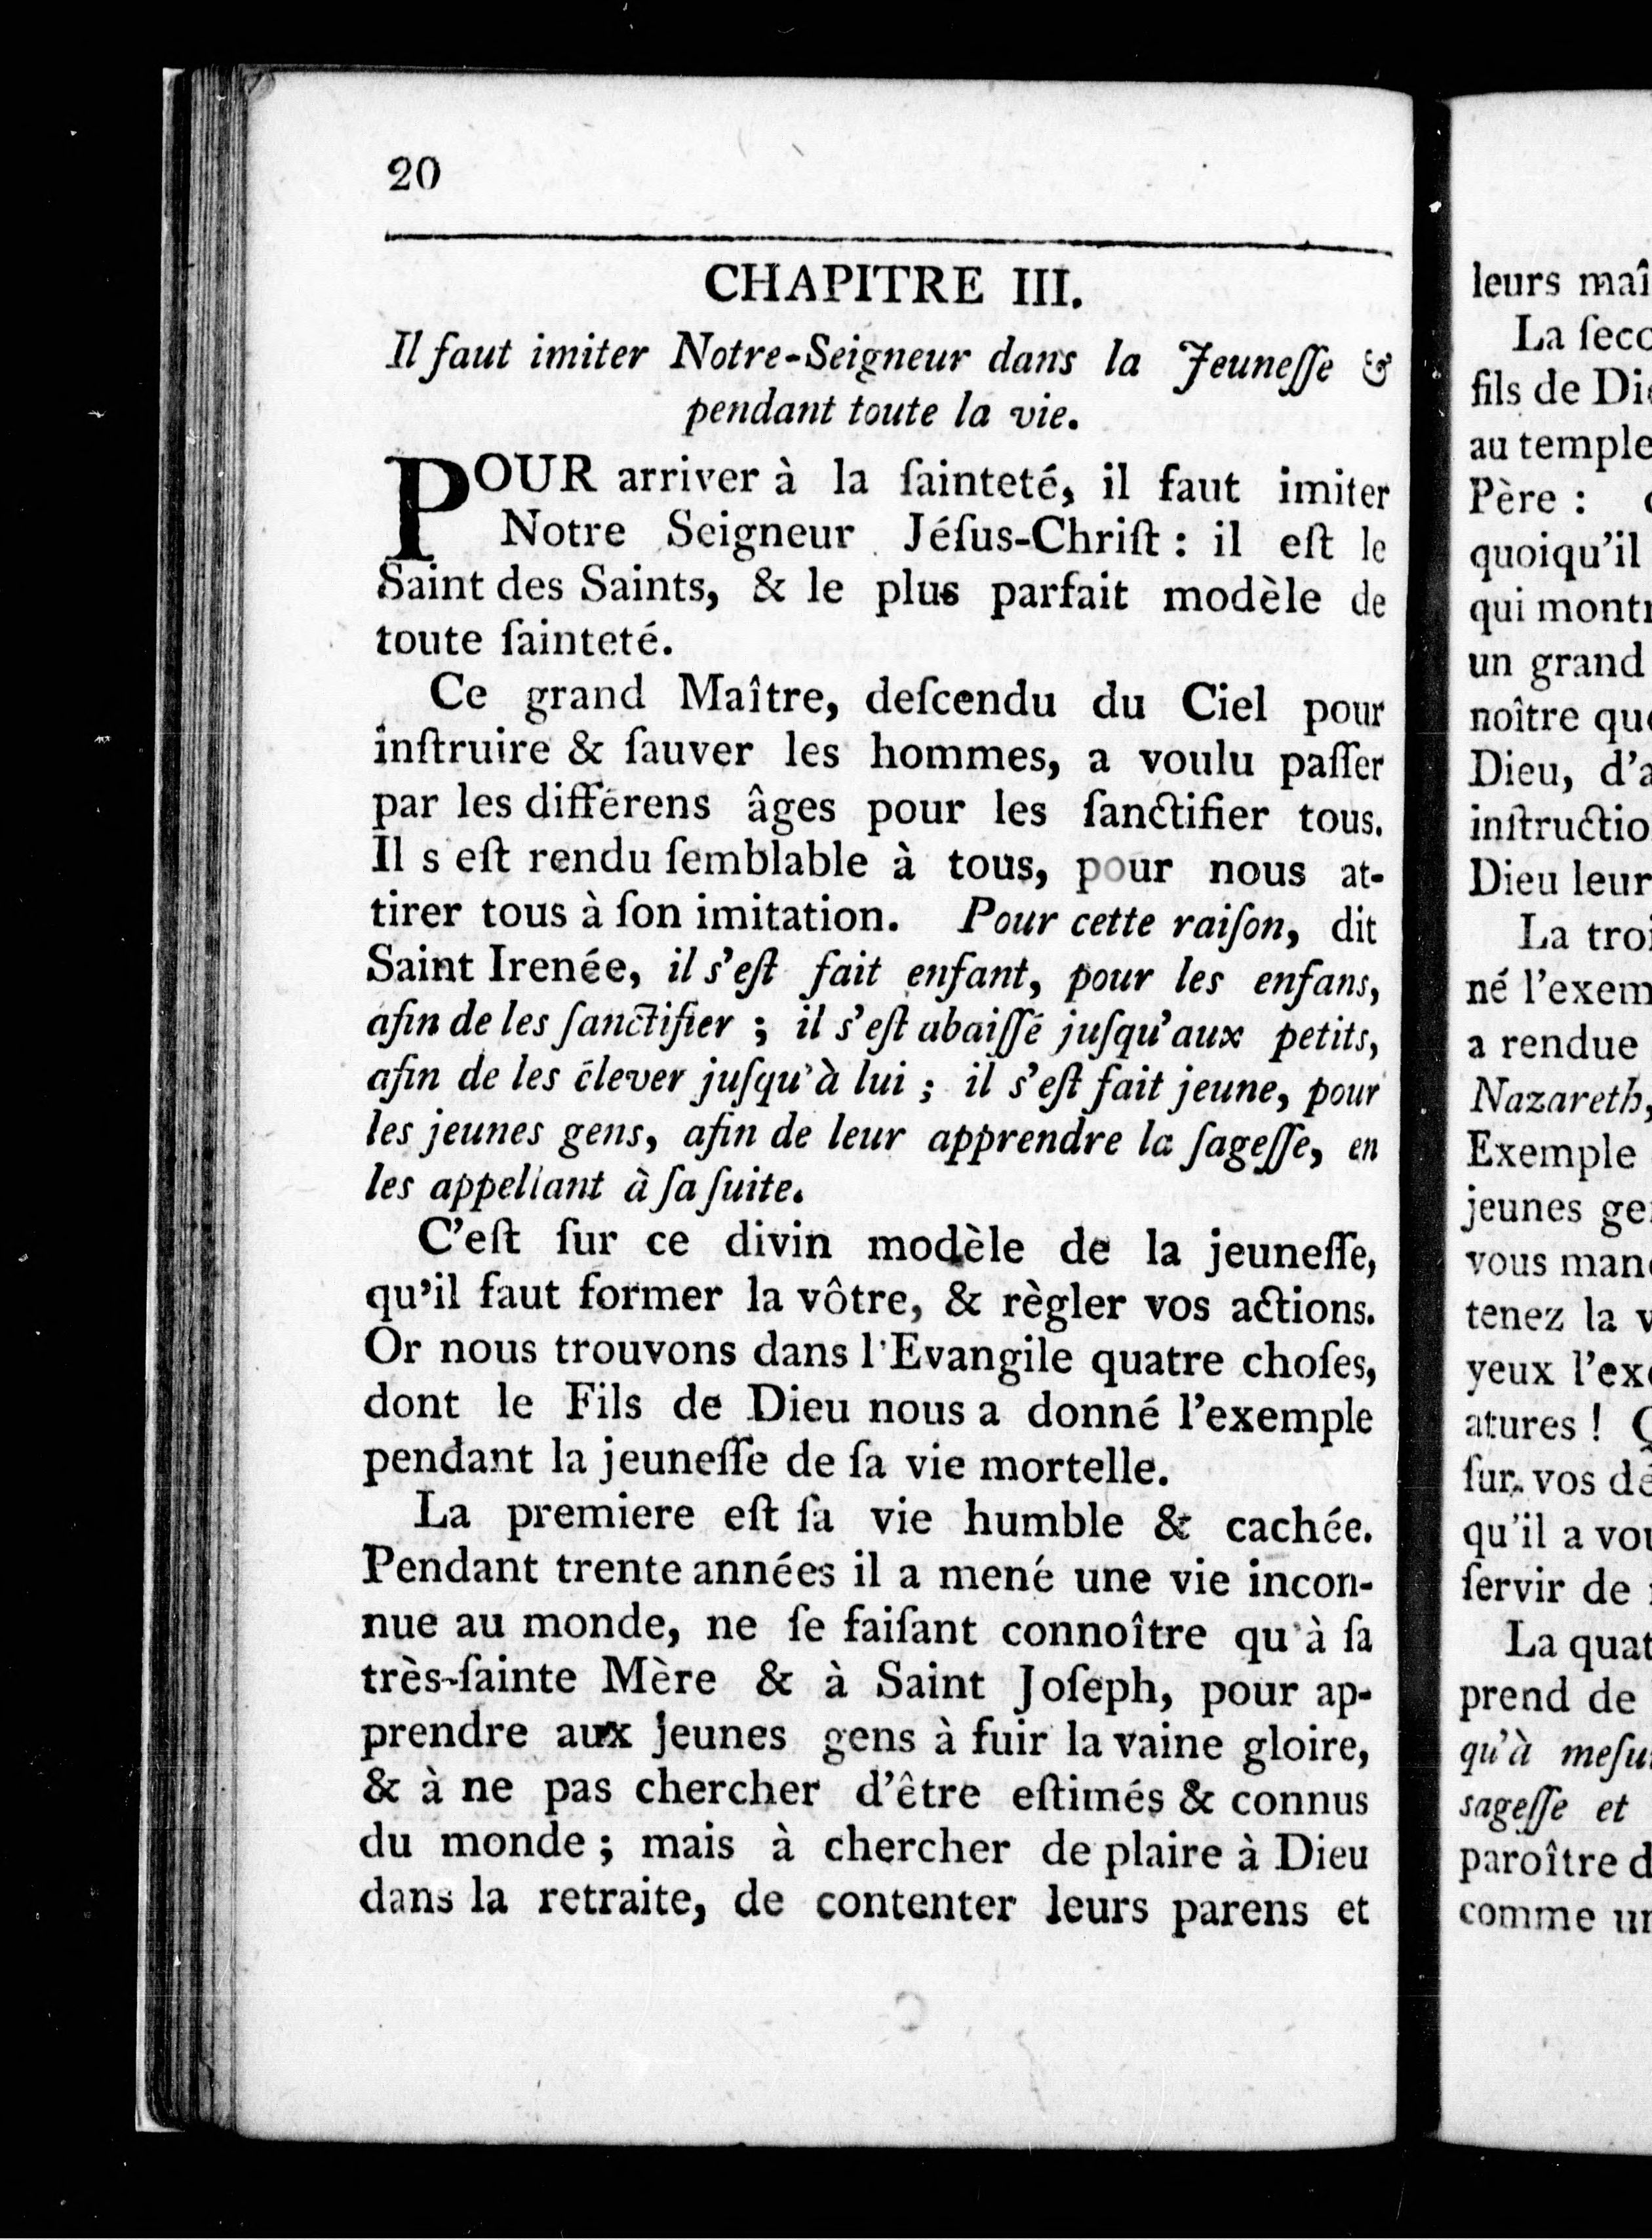 20
CHAPITRE III.
Il faut imiter Notre-Seigneur dans la Jeuneſſe &
pendant toute la vie.
POUR arriver à la ſainteté, il faut imiter
Notre Seigneur Jéſus-Chriſt : il eſt le
Saint des Saints, & le plus parfait modèle de
toute ſainteté.
Ce grand Maître, deſcendu du Ciel pour
inſtruire & ſauver les hommes, a voulu paſſer
par les différens âges pour les ſanctifier tous.
Il s eſt rendu ſemblable à tous, pour nous at-
tirer tous à ſon imitation. Pour cette raiſon, dit
Saint Irenée, il s'eſt fait enfant, pour les enfans,
afin de les ſanctifier ; il s'eſt abaiſſé juſqu'aux petits,
afin de les élever juſqu'à lui ; il s'eſt fait jeune, pour
les jeunes gens, afin de leur apprendre la ſageſſe, en
les appellant à ſa ſuite.
C'eſt ſur ce divin modèle de la jeuneſſe,
qu'il faut former la vôtre, & règler vos actions.
Or nous trouvons dans l'Evangile quatre choſes,
dont le Fils de Dieu nous a donné l'exemple
pendant la jeuneſſe de ſa vie mortelle.
La premiere eſt ſa vie humble & cachée.
Pendant trente années il a mené une vie incon-
nue au monde, ne ſe faiſant connoître qu'à ſa
très-ſainte Mère & à Saint Joſeph, pour ap-
prendre aux jeunes gens à fuir la vaine gloire,
& à ne pas chercher d'être eſtimés & connus
du monde ; mais à chercher de plaire à Dieu
dans la retraite, de contenter leurs parens et
leurs maî
La ſeco
fils de Die
au temple
Père :
quoiqu'il
qui montr
un grand
noître que
Dieu, d'a
inſtructio
Dieu leur
La troi
né l'exem
a rendue
Nazareth,
Exemple
jeunes ge
vous man
tenez la v
yeux l'exe
atures ! Ç
ſur vos dé
qu'il a vou
ſervir de
La quat
prend de
qu'à meſu
sageſſe et
paroître d
comme un